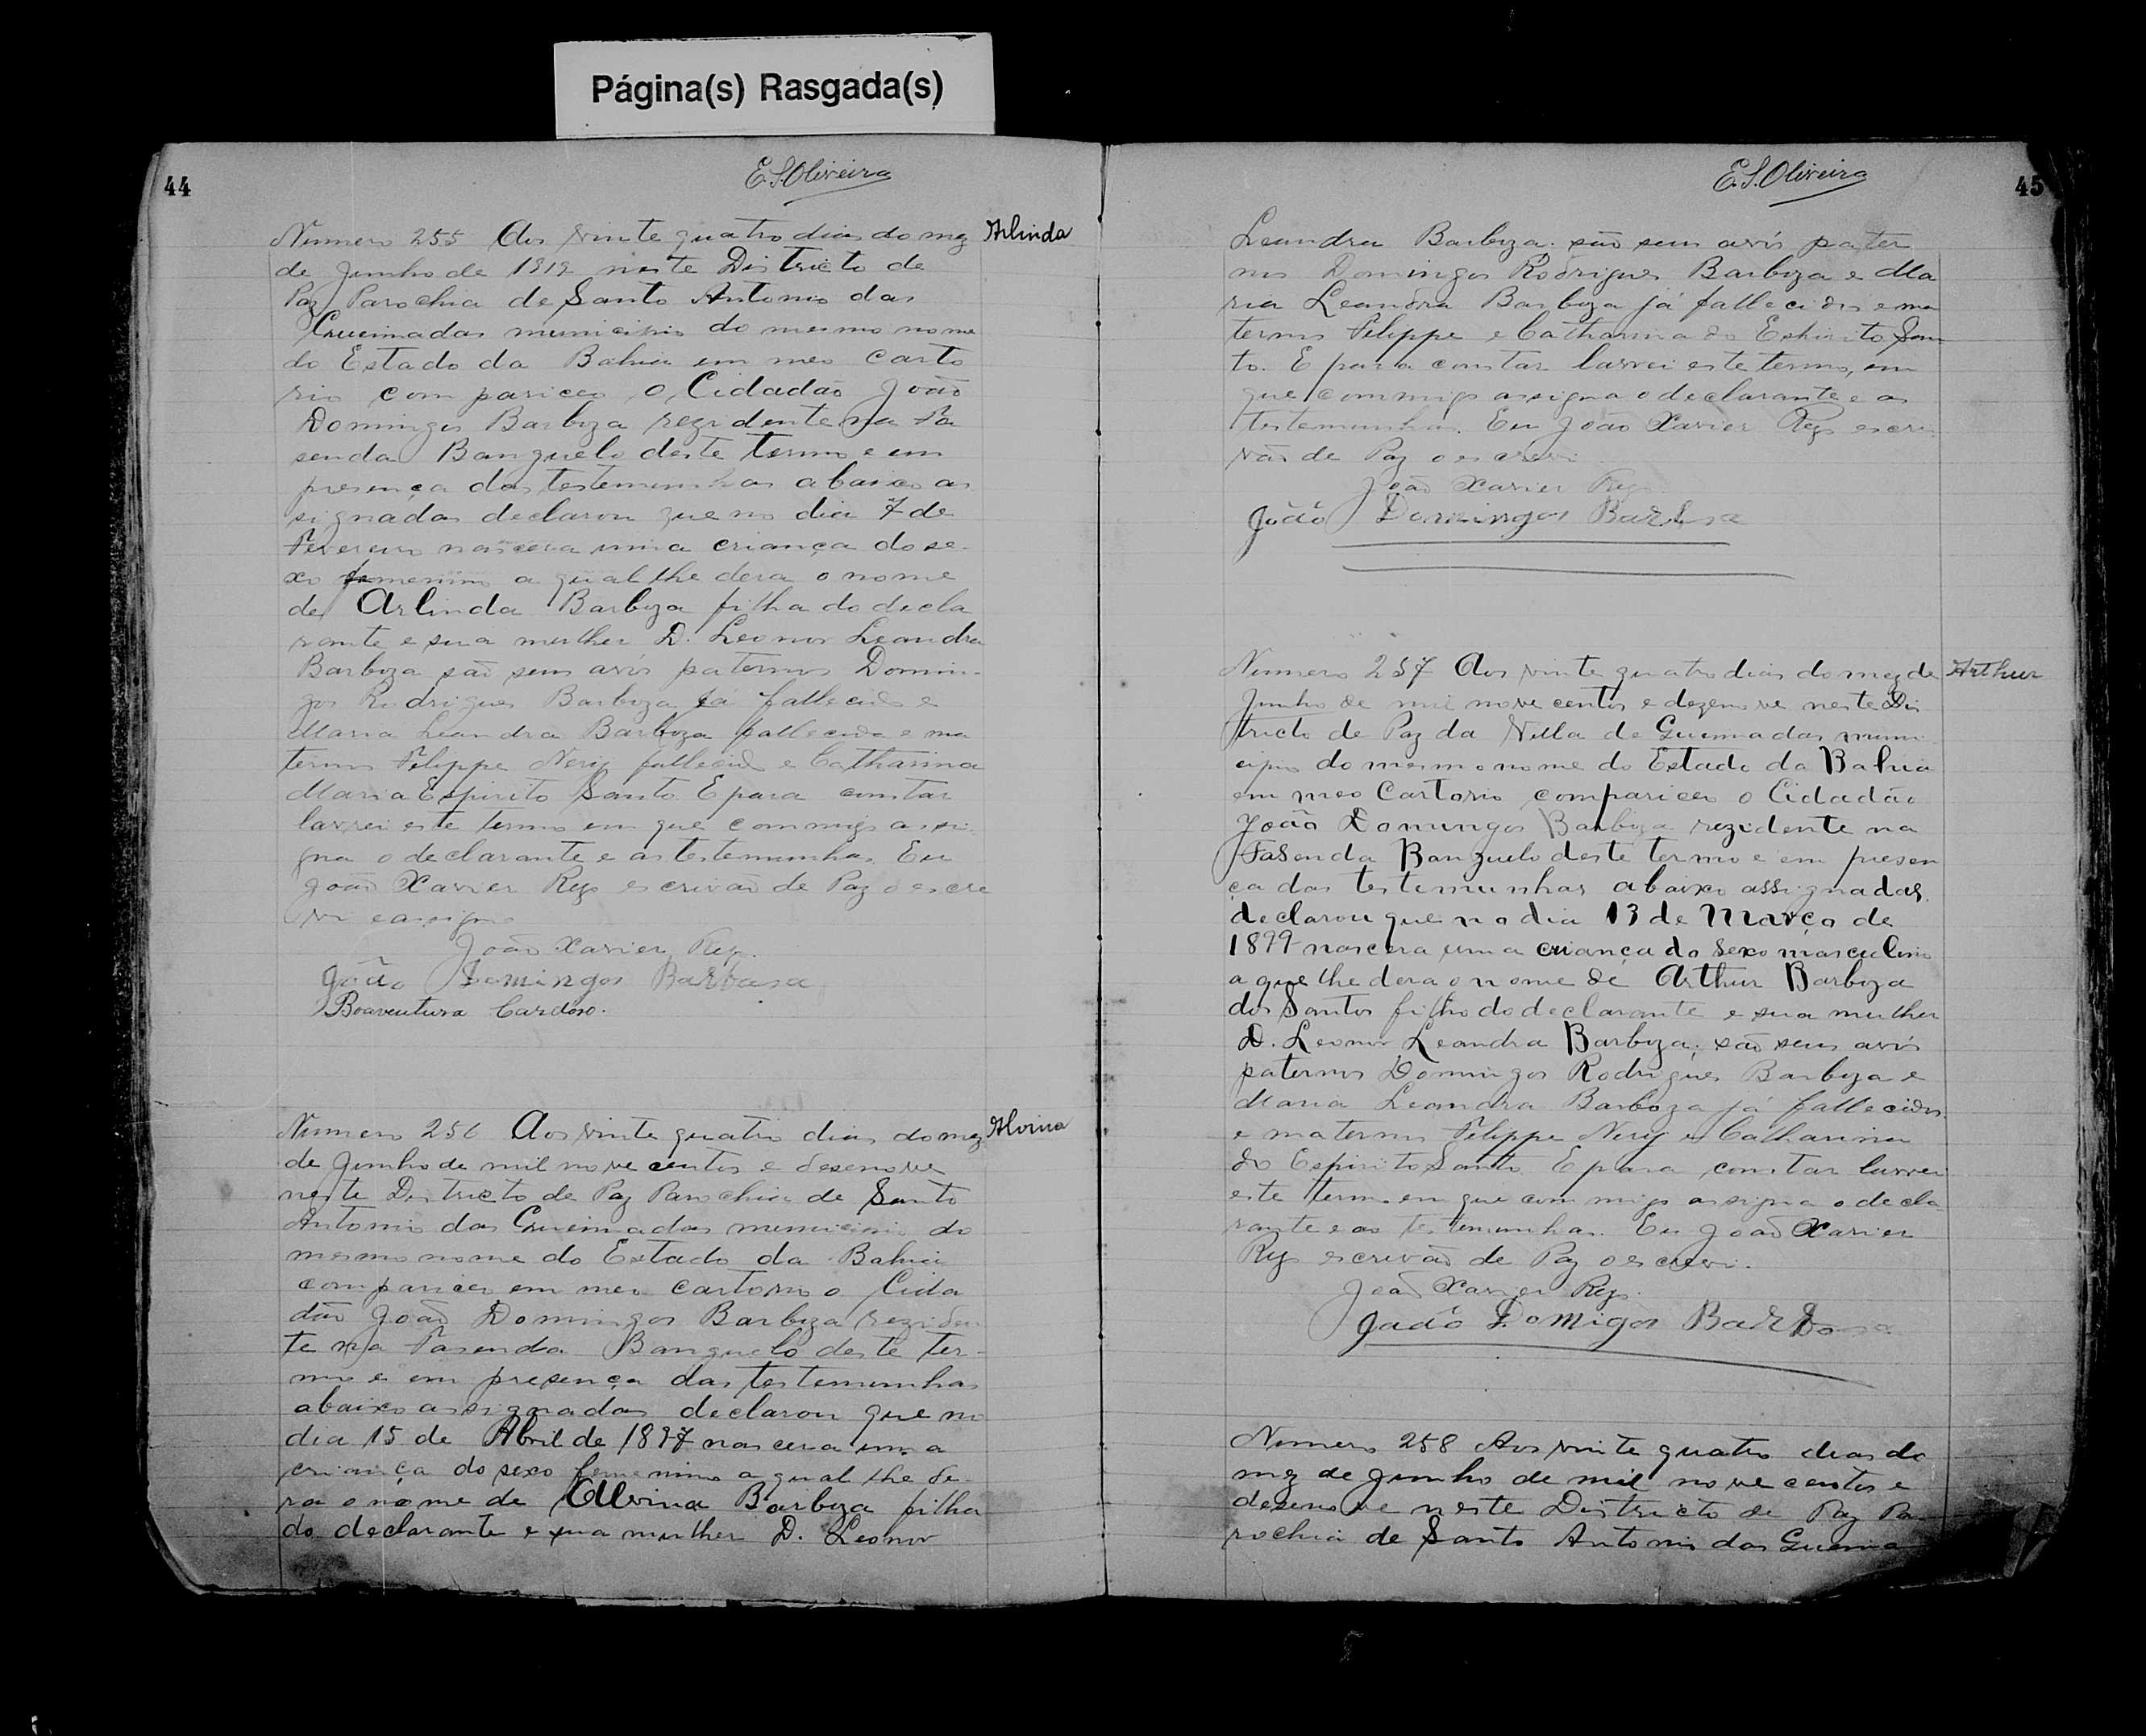 Página(s) Rasgada(s)
44
E.S.Oliveira
Numero 255 Aos vinte quatro dias do mez
Arlinda
de Junho de 1919 neste Districto de
Paz Parochia de Santo Antonio das
Queimadas municipio do mesmo nome
do Estado da Bahia em meo carto
rio compariceo o Cidadão João
Domingos Barboza rezidente na Fa
senda Banguelo deste termo e em
presença das testemunhas abaixo as
signadas declarou que no dia 7 de
Fevereiro nascera uma criança do se-
xo femenino a qual lhe dera o nome
de Arlinda Barboza filha do decla
rante e sua mulher D. Leonor Leandra
Barboza são seus avós paternos Domin-
gos Rodrigues Barboza já fallecido e
Maria Leandra Barboza fallecida e ma
ternos Filippe Nery fallecido e Catharina
Maria Espirito Santo. E para constar
lavrei este termo em que commigo assi
gna o declarante e as testemunhas. Eu
João Xavier Reys escrivão de Paz o escre
vi e assigno
João Xavier Reys.
João Domingos Barbosa
Boaventura Cardoso.
Numero 256 Aos vinte quatro dias do mez
Alvina
de Junho de mil nove centos e desenove
neste Districto de Paz Parochia de Santo
Antonio das Queimadas municipio do
mesmo nome do Estado da Bahia
compariceo em meo cartorio o Cida
dão João Domingos Barboza reziden
te na Fasenda Banguelo deste ter-
mo e em presença das testemunhas
abaixo assignadas declarou que no
dia 15 de Abril de 1897 nascera uma
criança do sexo femenino a qual lhe de-
ra o nome de Alvina Barboza filha
do declarante e sua mulher D. Leonor
E.S.Oliveira
45
Leandra Barboza. são seus avós pater
nos Domingos Rodrigues Barboza e Ma
ria Leandra Barboza já fallecidos e ma
ternos Filippe e Catharina do Espirito San
to. E para constar lavrei este termo, em
que commigo assigna o declarante e as
testemunhas. Eu João Xavier Reys escri
vão de Paz o escrevi
João Xavier Reys
João Domingos Barbosa
Numero 257 Aos vinte quatro dias do mez de
Arthur
Junho de mil nove centos e dezenove neste Dis
tricto de Paz da Villa de Queimadas muni
cipio do mesmo nome do Estado da Bahia
em meo Cartorio compariceo o Cidadão
João Domingos Barboza rezidente na
Fasenda Banguelo deste termo e em presen
ça das testemunhas abaixo assignadas
declarou que no dia 13 de Março de
1899 nascera uma criança do sexo masculino
a que lhe dera o nome de Arthur Barboza
dos Santos filho do declarante e sua mulher
D. Leonor Leandra Barboza; são seus avós
paternos Domingos Rodrigues Barboza e
Maria Leandra Barboza já fallecidos
e maternos Filippe Nery e Catharina
do Espirito Santo. E para constar lavrei
este termo em que commigo assigna o decla
rante e as testemunhas. Eu João Xavier
Reys escrivão de Paz o escrevi.
João Xavier Reys.
João Domigos Barbosa
Numero 258 Aos vinte quatro dias do
mez de Junho de mil nove centos e
desenove neste Districto de Paz Pa
rochia de Santo Antonio das Queima